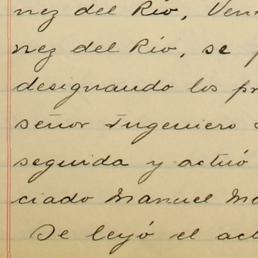 nez del Río, Ven
nez del Río, se p
designando los pr
señor Ingeniero
seguida y actuó
ciado Manuel Mo
Se leyó el act